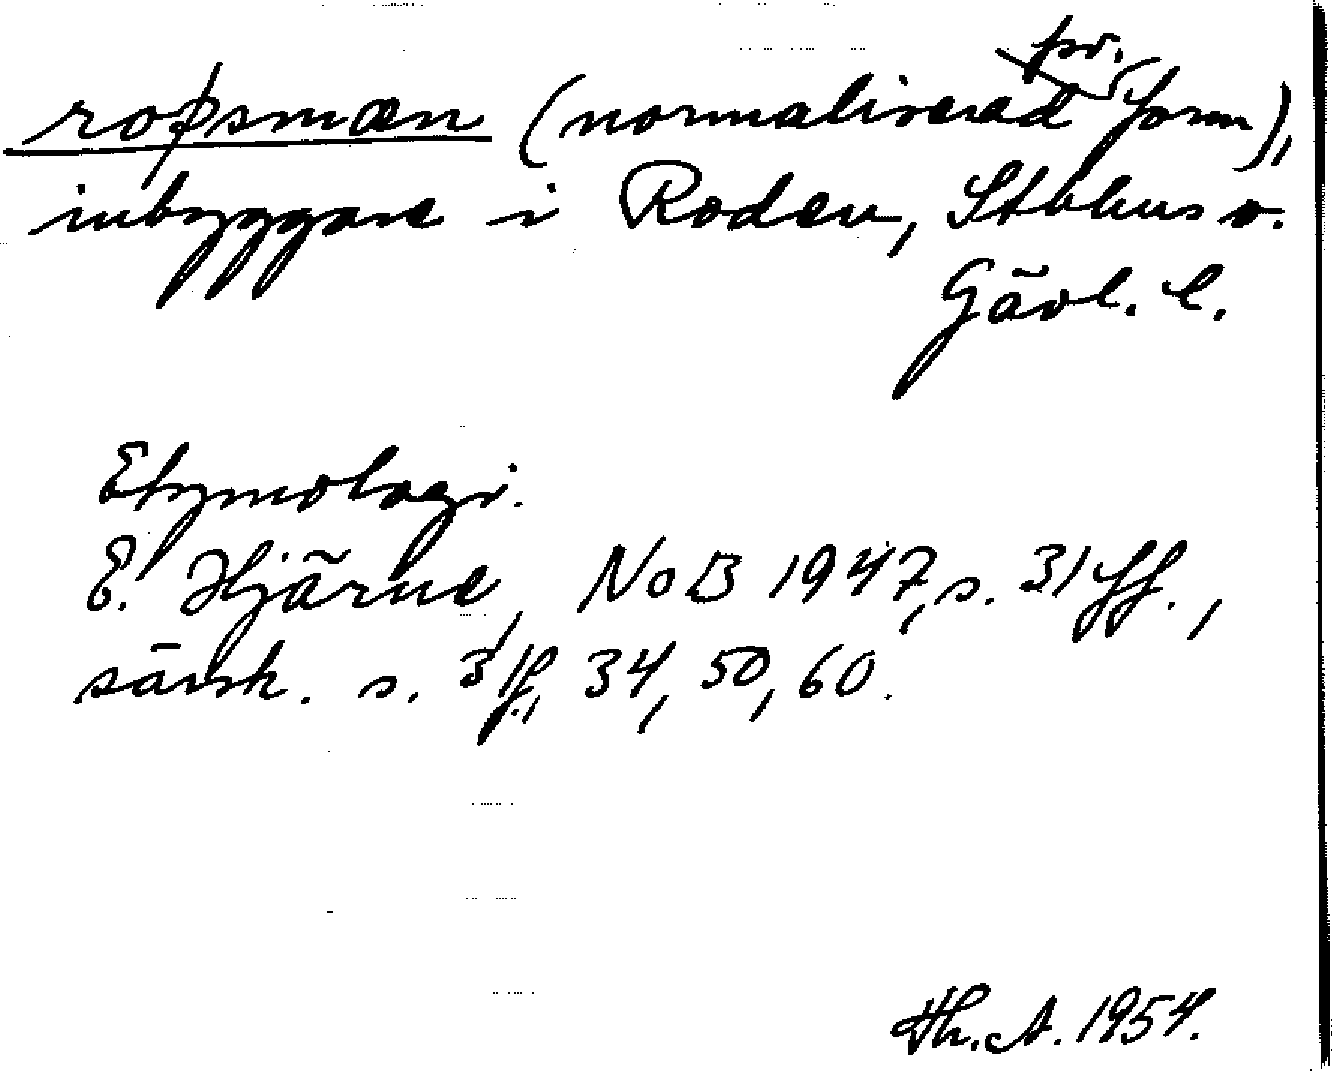 roþsmæn (normaliserad pr. form),
inbyggare i Roden, Sthlms o.
Gävl. l.
Etymologi.
E. Hjärne, NoB 1947, s. 31 ff.,
särsk. s. 31 f., 34, 50, 60.
Th. A. 1954.